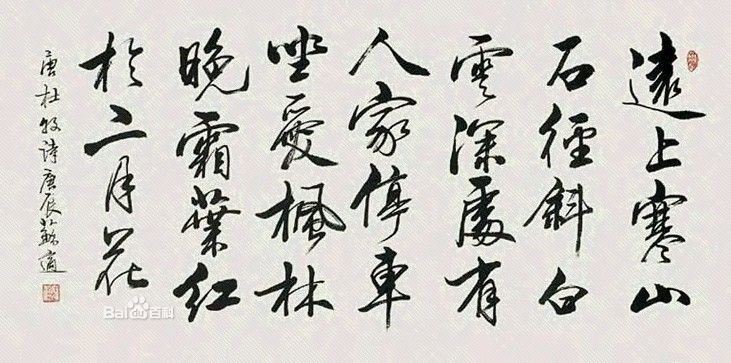 遠上寒山
石徑斜白
雲深處有
人家停車
坐愛楓林
晚霜葉紅
於二月花
唐杜牧詩庚辰蘇適
Bai百科